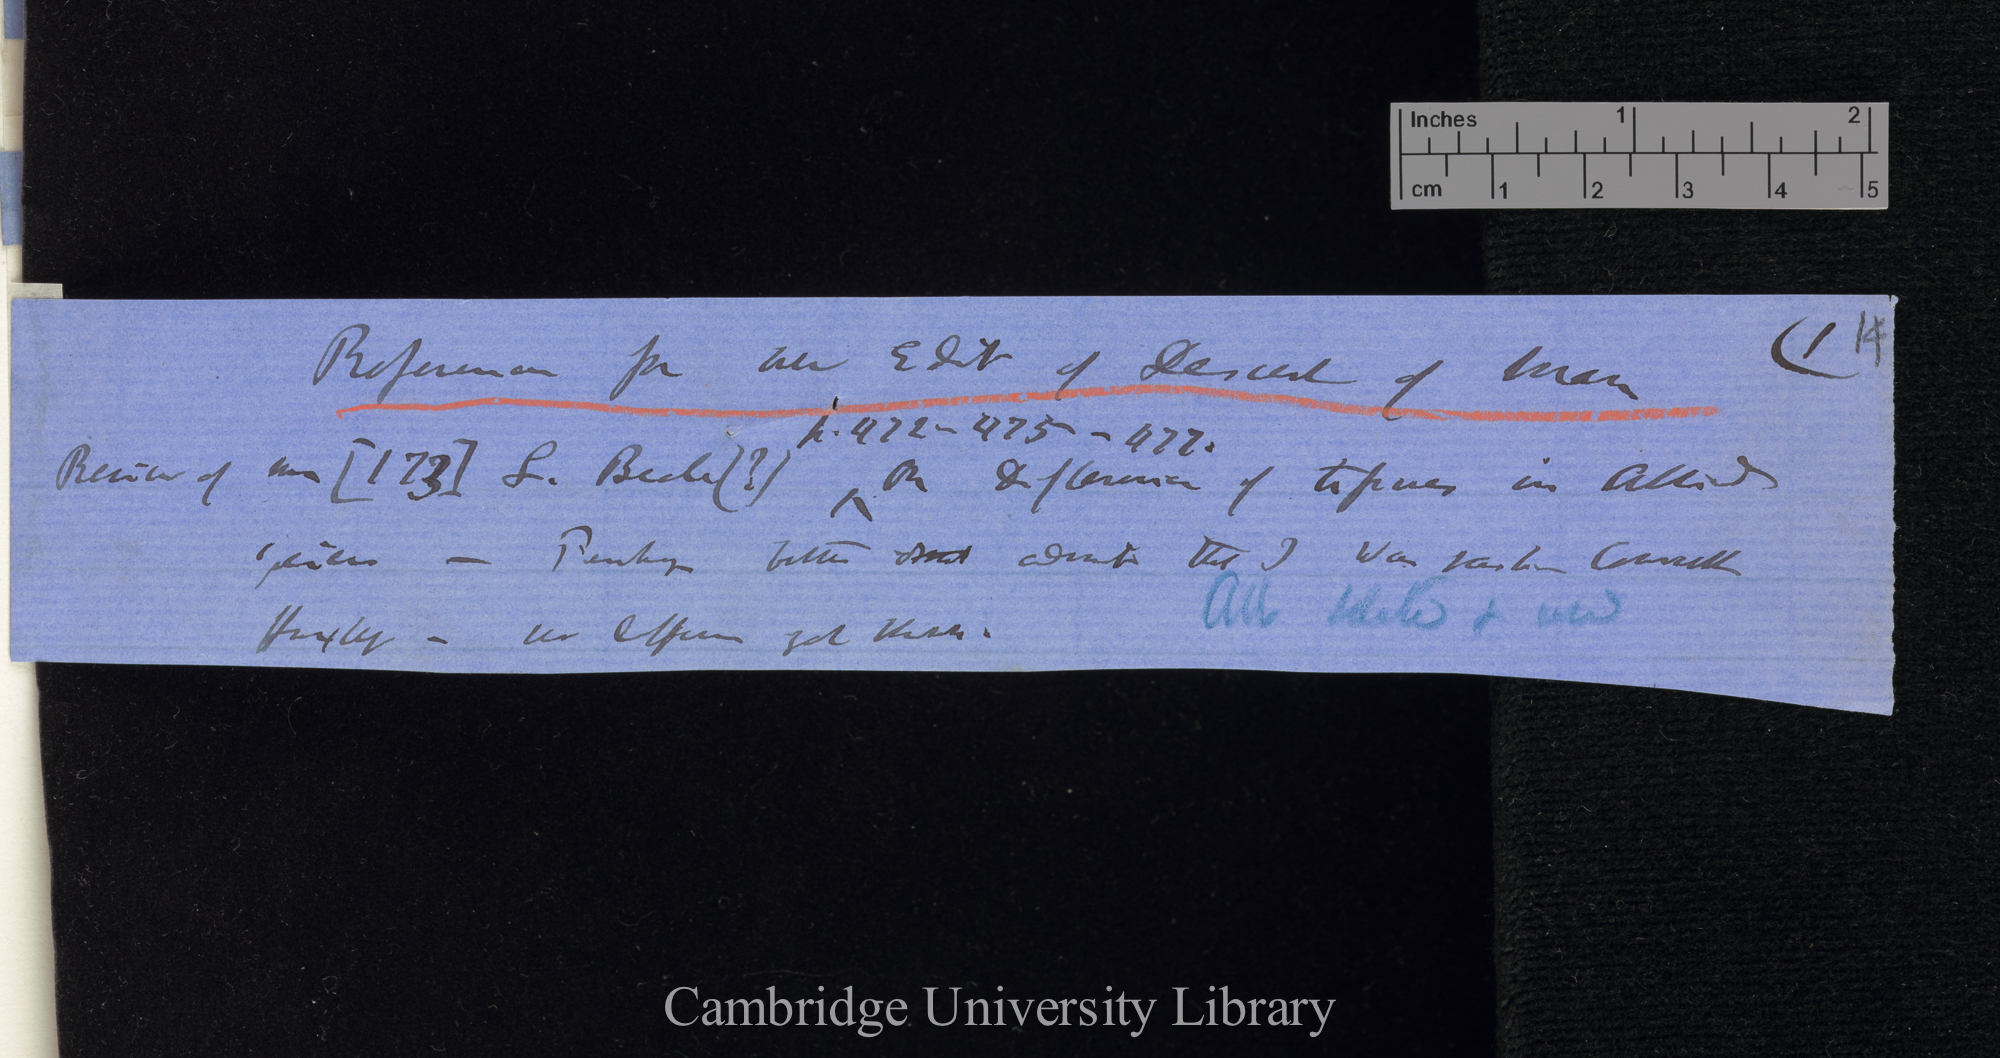 References for new Edit of Descent of Man
(1 14
p. 472 - 475 - 477.
Review of me [173] L. Beale(?) ^ On Difference of tissues in Allied
species — Perhaps better admit that I was rash Consult
Huxley — no Offprint yet
All ted & used
Inches 1 2
cm 1 2 3 4 5
Cambridge University Library